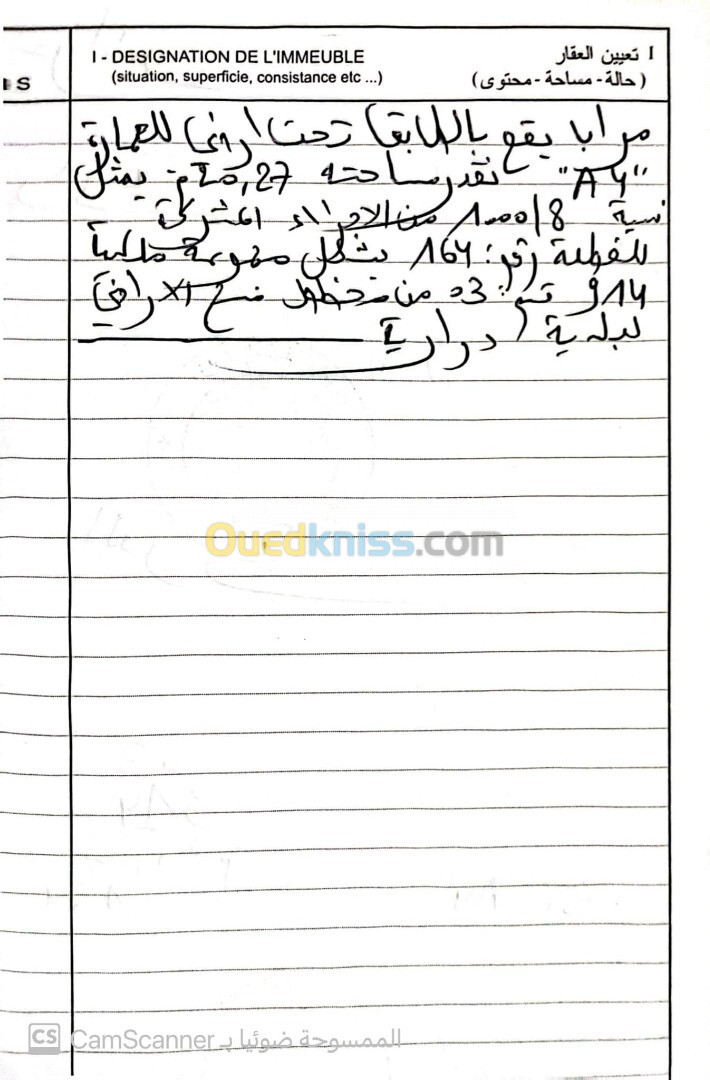 I - DESIGNATION DE L'IMMEUBLE
(situation, superficie, consistance etc ...)
I تعيين العقار
(حالة - مساحة - محتوى)
S
مرابا يقع بالطابق تحت ارضي للعمارة
"A4" تقدر مساحته 27, م² يمثل
نسبة 8/1000 من الاجزاء المشتركة
للقطعة رقم: 164 يشكل مجموعة ملكية
914 قسم: 03 من مخطط مسح الاراضي
لبلدية درارية
Ouedkniss.com
CS CamScanner الممسوحة ضوئيا بـ